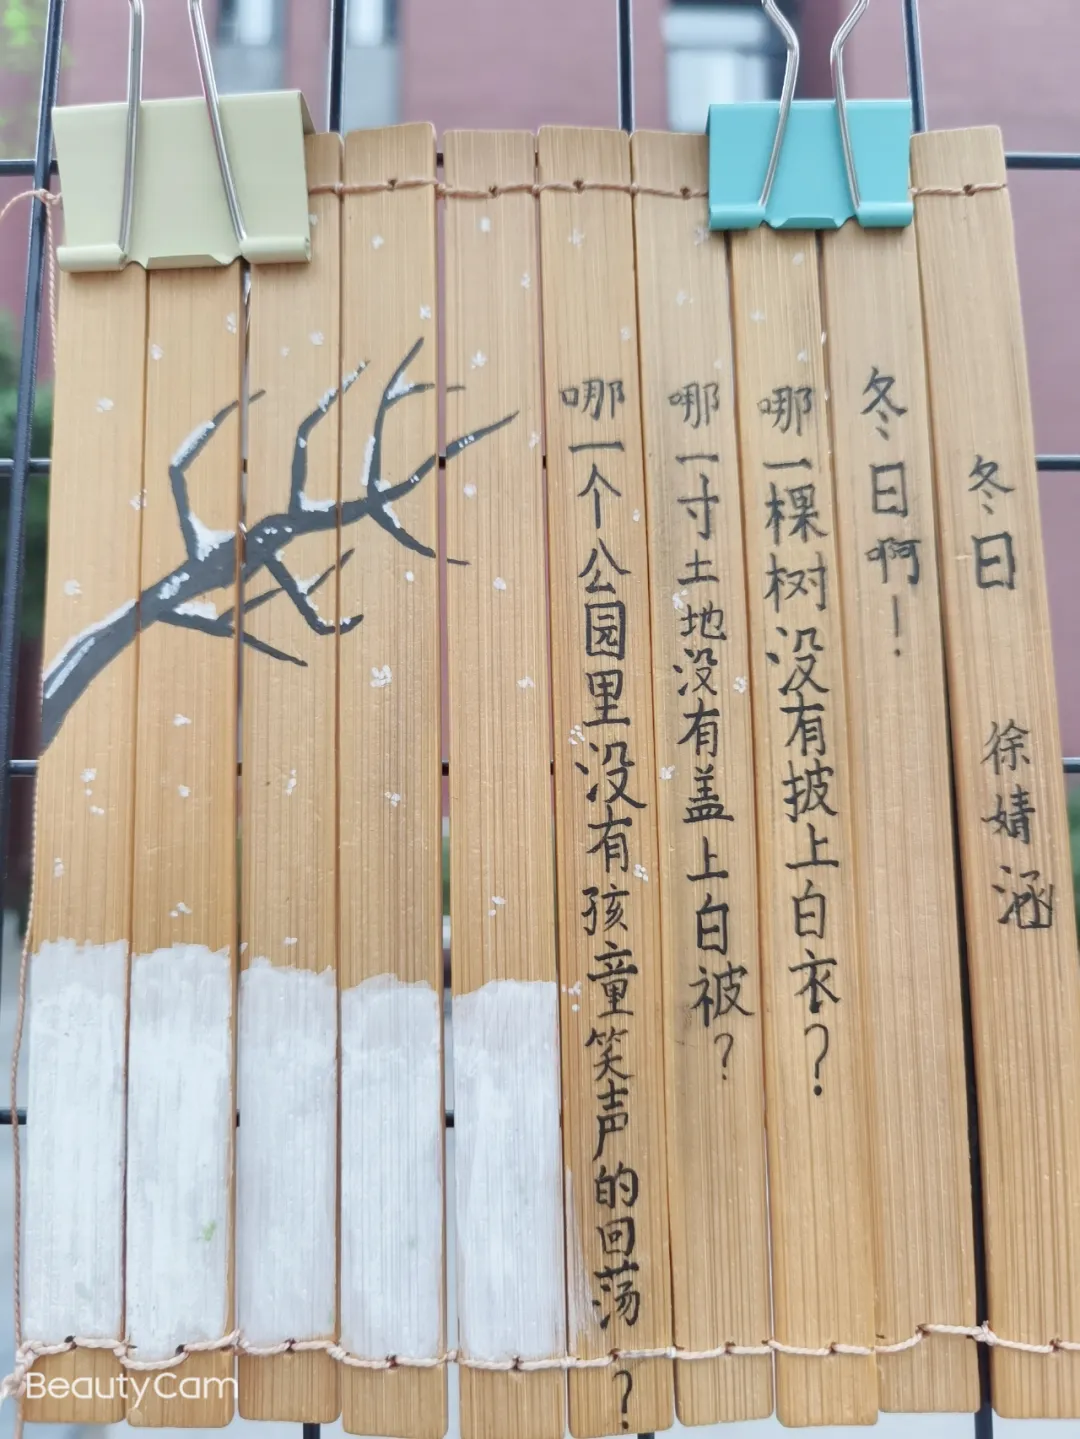 冬日 徐婧涵
冬日啊！
哪一棵树没有披上白衣？
哪一寸土地没有盖上白被？
哪一个公园里没有孩童笑声的回荡？
BeautyCam